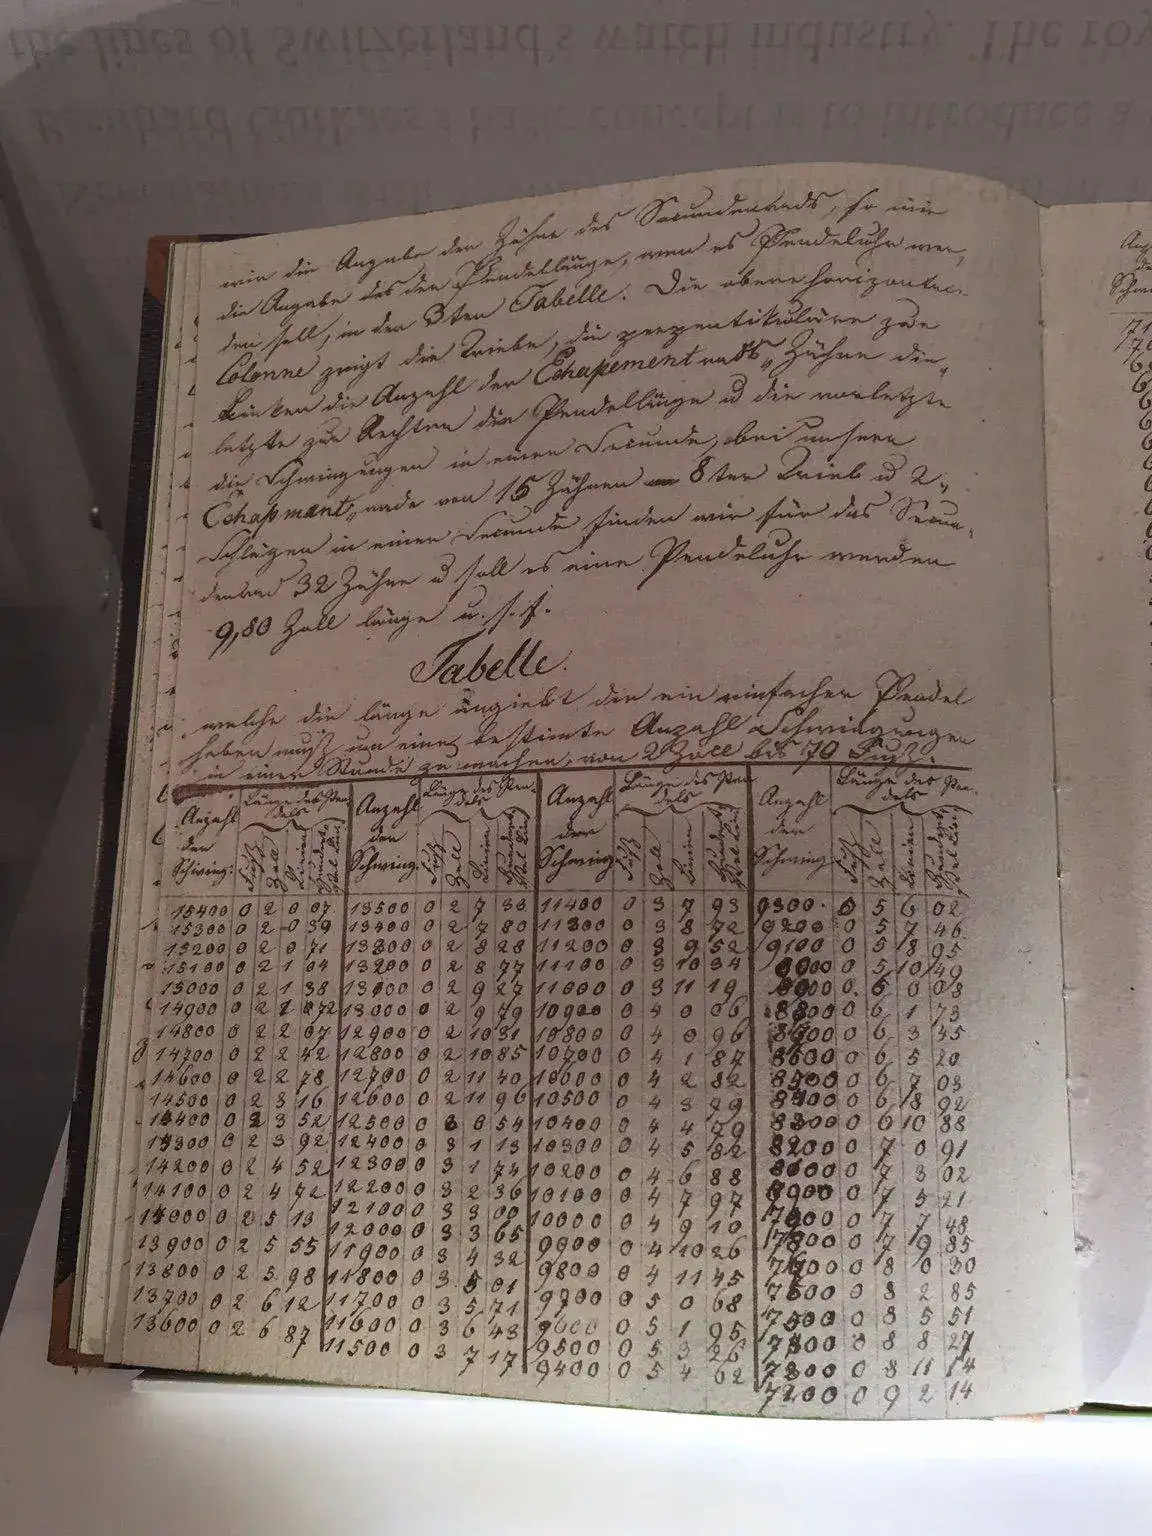 the lines of Switzerland's watch industry. The roy
Bernhard Gutkaes's basic concept is to introduce a
wie die Angabe der Zähne des Secundenrads, so wie
die Angabe des der Pendellänge, wenn es Pendeluhr wer,
den soll, in der 3ten Tabelle. Die obere horizontale
Colonne zeigt die Triebe, die perpentikuläre zur
Linken die Anzahl der Echapement rads Zähne die
letzte zur Rechten die Pendellänge u die vorletzte
die Schwingungen in einer Secunde, bei unserm
Echapmant, rade von 15 Zähnen 8ter Trieb u 2,
Schlägen in einer Secunde finden wir für das Secun,
denrad 32 Zähne u soll es eine Pendeluhr werden
9,80 Zoll länge u. s. f.
Tabelle.
welche die länge angiebt die ein einfacher Pendel
haben muß um eine bestimte Anzahl Schwingungen
in einer Stunde zu machen, von 2 Zoll bis 70 Fuß.
Anzahl der Schwing: Länge des Pendels Fuß Zoll Linien Anzahl der Schwing. Länge des Pendels Fuß Zoll Linien Anzahl der Schwing. Länge des Pendels Fuß Zoll Linien Anzahl der Schwing. Länge des Pendels Fuß Zoll Linien
15400 0 2 0 07 13500 0 2 7 33 11400 0 3 7 93 9300 0 5 6 02
15300 0 2 0 39 13400 0 2 7 80 11300 0 3 8 72 9200 0 5 7 46
15200 0 2 0 71 13300 0 2 8 28 11200 0 3 9 52 9100 0 5 8 95
15100 0 2 1 04 13200 0 2 8 77 11100 0 3 10 34 0 5 10 49
15000 0 2 1 38 13100 0 2 9 27 11000 0 3 11 19 0 6 0 08
14900 0 2 1 72 13000 0 2 9 79 10900 0 4 0 06 8800 0 6 1 73
14800 0 2 2 07 12900 0 2 10 31 10800 0 4 0 96 8700 0 6 3 45
14700 0 2 2 42 12800 0 2 10 85 10700 0 4 1 87 8600 0 6 5 20
14600 0 2 2 78 12700 0 2 11 40 10600 0 4 2 82 8500 0 6 7 03
14500 0 2 3 16 12600 0 2 11 96 10500 0 4 3 79 8400 0 6 8 92
14400 0 2 3 52 12500 0 3 0 54 10400 0 4 4 79 8300 0 6 10 88
14300 0 2 3 92 12400 0 3 1 13 10300 0 4 5 82 8200 0 7 0 91
14200 0 2 4 52 12300 0 3 1 74 10200 0 4 6 88 0 7 3 02
14100 0 2 4 72 12200 0 3 2 36 10100 0 4 7 97 0 7 5 21
14000 0 2 5 13 12100 0 3 3 00 10000 0 4 9 10 7900 0 7 7 48
13900 0 2 5 55 12000 0 3 3 65 9900 0 4 10 26 7800 0 7 9 85
13800 0 2 5 98 11900 0 3 4 32 9800 0 4 11 45 7700 0 8 0 30
13700 0 2 6 12 11800 0 3 5 01 9700 0 5 0 68 7600 0 8 2 85
13600 0 2 6 87 11700 0 3 5 71 9600 0 5 1 95 7500 0 8 5 51
11600 0 3 6 43 9500 0 5 3 26 7400 0 8 8 27
11500 0 3 7 17 9400 0 5 4 62 7300 0 8 11 14
7200 0 9 2 14